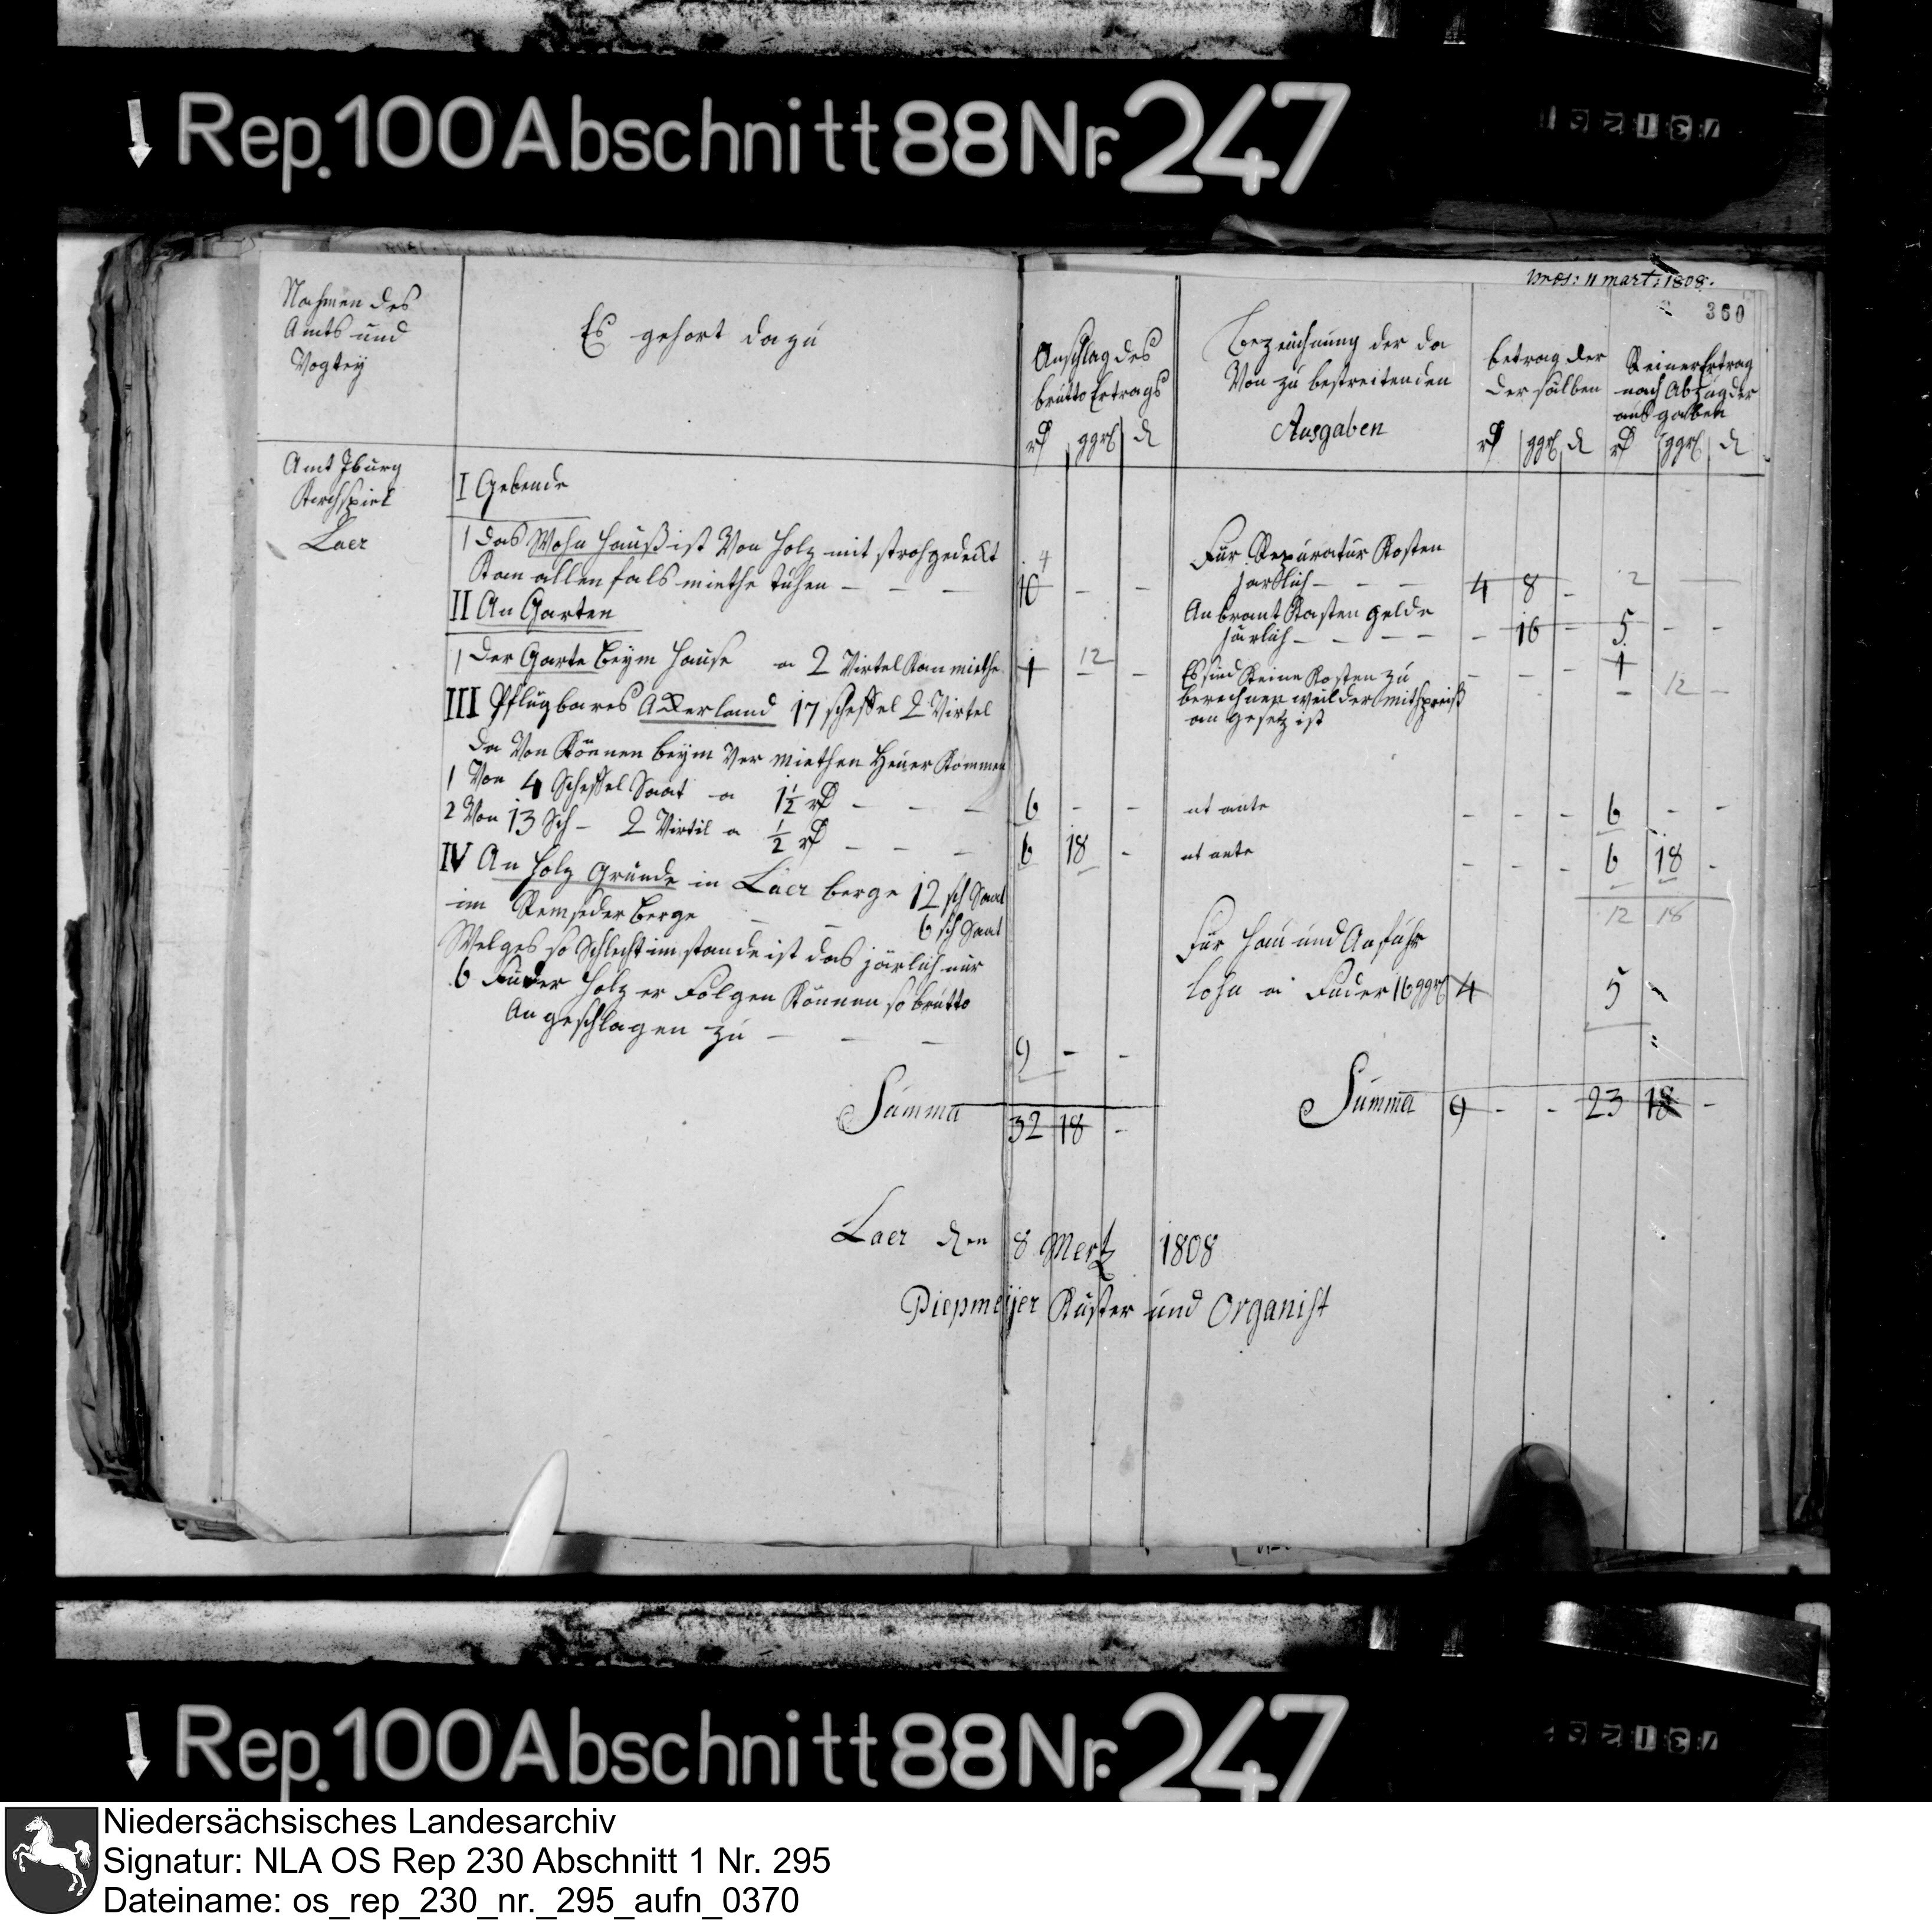 Rep. 100 Abschnitt 88 Nr. 247
pres: 11 mart: 1808.
360
Nahmen des
Amts und
Vogtey
Es gehort dazu
Anschlag des
brutto Ertrags
rd ggr d
Bezeichnung der da
Von zu bestreitenden
Ausgaben
betrag der
der sälben
rd ggr d
Reiner Ertrag
nach Abzug der
aus gaben
rd ggr d
Amt Iburg
Kirchspiel
Laer
I Gebeude
1 das Wohn Hauß ist Von Holz mit stroh gedeckt
Kan allenfals miethe tuhen - - - 10 - -
4
Für Reparatur Kosten
järlich - - - 4 8 -
2
II An Garten
An brant Kasten gelde
järlich - - - - - 16 - 5 - -
1 Der Garte beym Hause a 2 Virtel Kan miethe 1 12 -
Es sind Keine Kosten zu - - - 1
berechnen weil der mithpreiß - 12 -
an gesetz ist
III Pflugbares Ackerland 17 scheffel 2 Virtel
da Von Können beym Ver miethen Heuer Kommen
1 Von 4 Scheffel Saat a 1 1/2 rd - - - 6 - - ut ante - - - 6 - -
2 Von 13 Sch - 2 Virtil a 1/2 rd - - - 6 18 - ut ante - - - 6 18 -
12 18
IV An Holz Gründe in Läer berge 12 sch Saat
im Remseder berge - - 6 sch Saat
Welges so Schlecht im stande ist das järlich nur
6 Fuder Holz er Folgen Können so brutto
An geschlagen zu - - - 9 - -
Für Hau und Anfuhr
Lohn a Fuder 16 ggr 4 5
Summa 32 18 -
Summa 9 - - 23 18 -
Laer den 8 Mertz 1808
Diepmeijer Küster und Organist
Rep. 100 Abschnitt 88 Nr. 247
Niedersächsisches Landesarchiv
Signatur: NLA OS Rep 230 Abschnitt 1 Nr. 295
Dateiname: os_rep_230_nr._295_aufn_0370